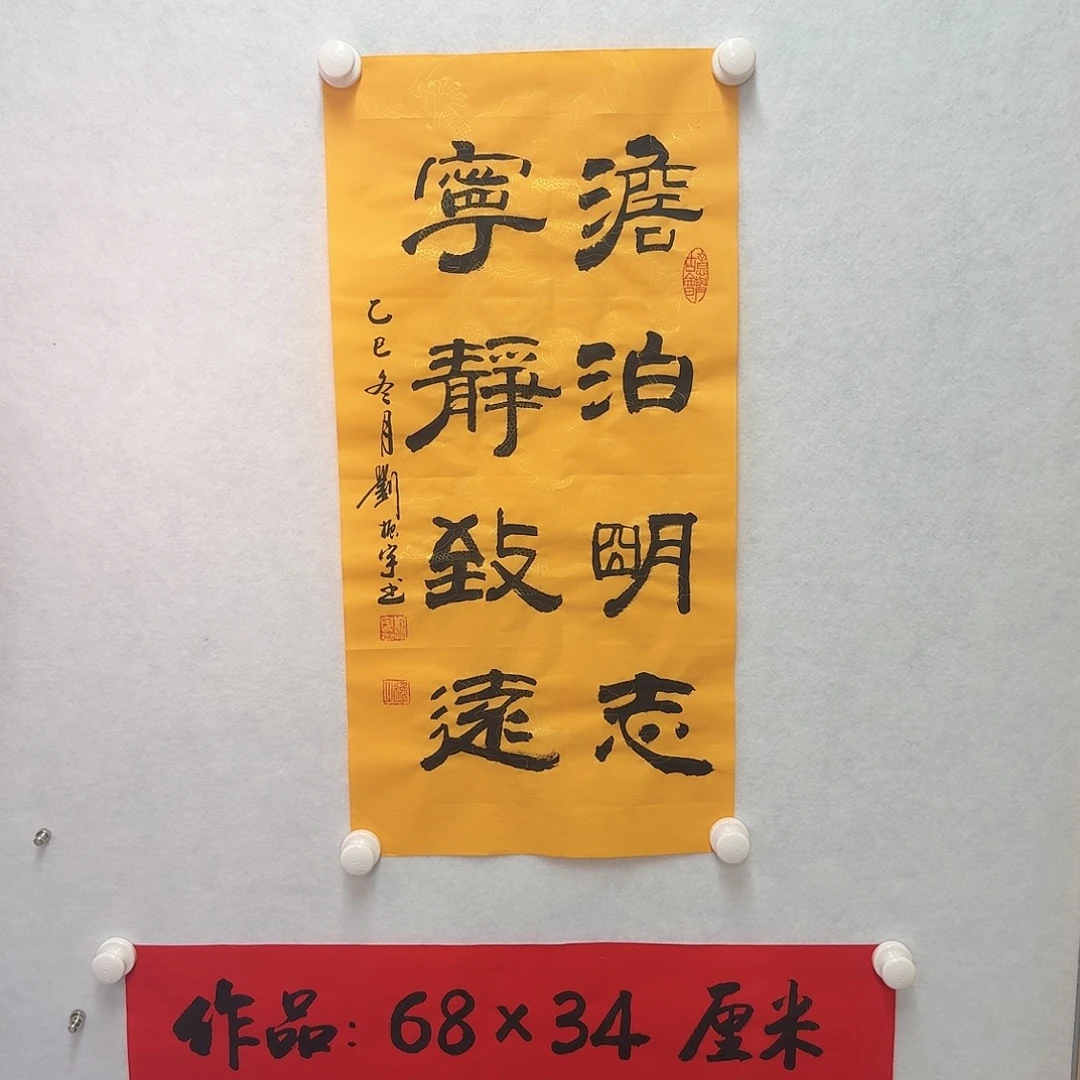 澹泊明志
寧靜致遠
乙巳冬月劉振宇书
作品:68×34厘米